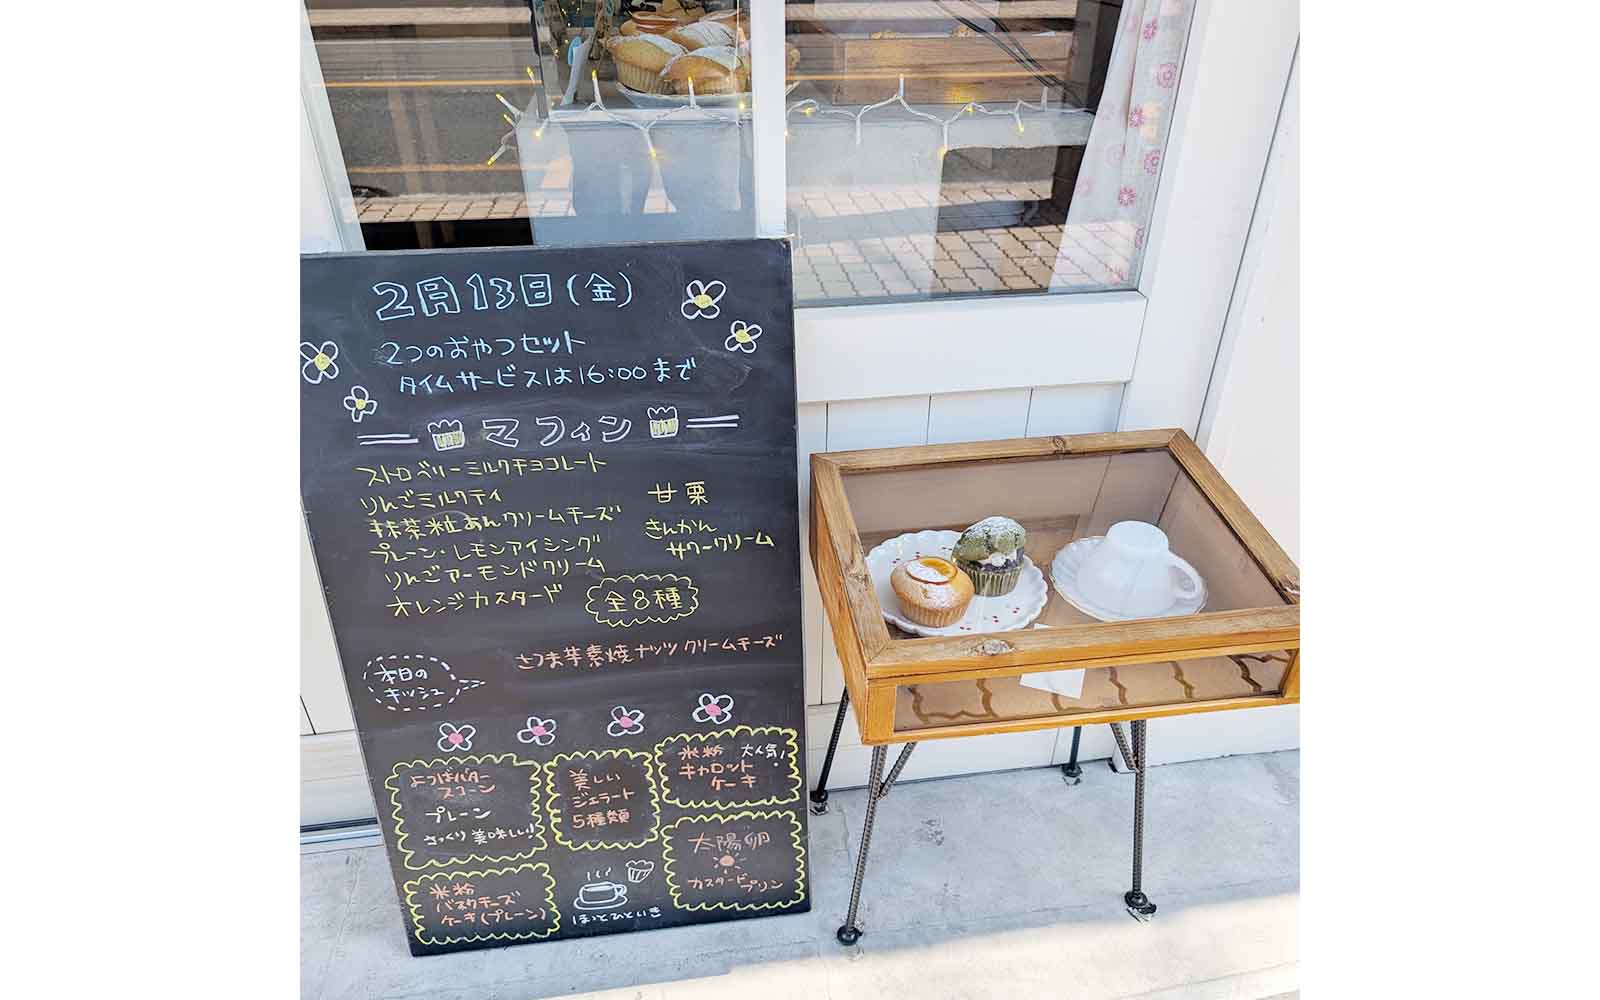 2月13日(金)
2つのおやつセット
タイムサービスは16:00まで
マフィン
ストロベリーミルクチョコレート
りんごミルクティ
抹茶粒あんクリームチーズ
プレーン・レモンアイシング
りんごアーモンドクリーム
オレンジカスタード
甘栗
きんかん
サワークリーム
全8種
本日の
キッシュ
さつま芋素焼ナッツクリームチーズ
よつばバター
スコーン
プレーン
さっくり美味しい!
美しい
ジェラート
5種類
米粉 大人気!
キャロット
ケーキ
米粉
バスクチーズ
ケーキ(プレーン)
ほっとひといき
太陽卵
カスタードプリン